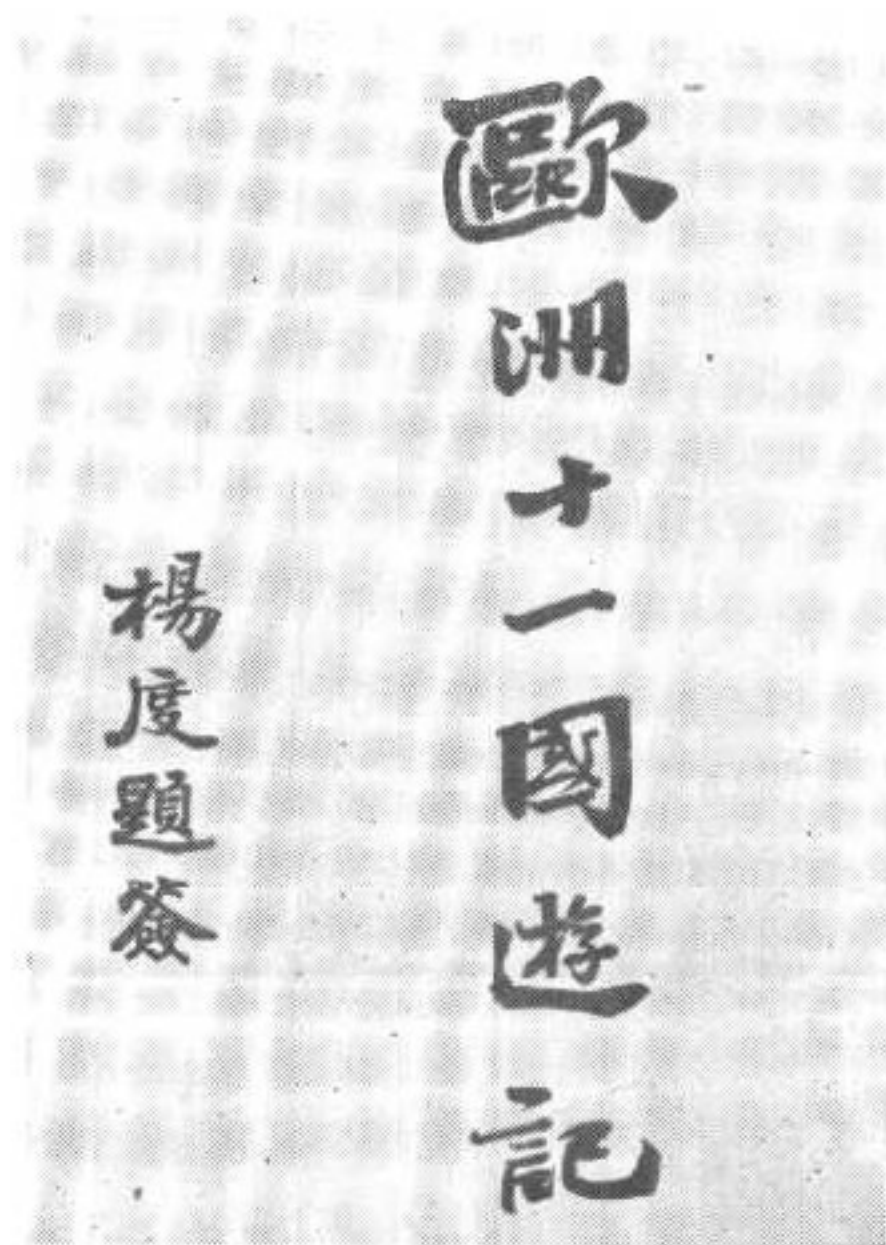 歐洲十一國遊記
楊度題簽